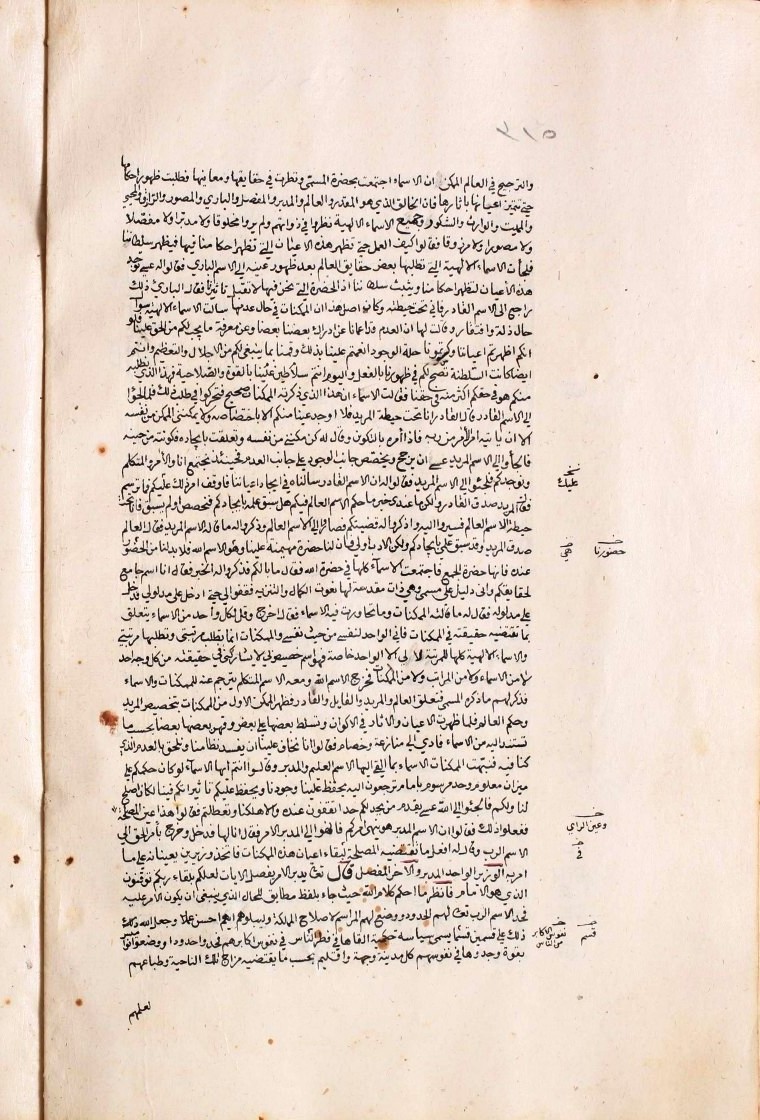 ٣١٥
والترجيح في العالم الممكن ان الاسماء اجتمعت بحضرة المسمى ونظرت في حقايقها ومعانيها فطلبت ظهور احكامها
حتى تتميز اعيانها باثارها فان الخالق الذي هو المقدر والعالم والمدبر والمفصل والباري والمصور والرزاق والمحيي
والمميت والوارث والشكور وجميع الاسماء الالهية نظروا في ذواتهم ولم يروا مخلوقا ولا مدبرا ولا مفصلا
ولا مصورا ولا مرزوقا فقالوا كيف العمل حتى تظهر هذه الاعيان التي تظهر احكامنا فيها فيظهر سلطاننا
فلجأت الاسماء الالهية التي تطلبها بعض حقايق العالم بعد ظهور عينه الى الاسم الباري فقالوا له عسى توجد
هذه الاعيان لتظهر احكامنا ويثبت سلطاننا اذ الحضرة التي نحن فيها لا تقبل تاثيرنا فقال الباري ذلك
راجع الى الاسم القادر فاني تحت حيطته وكان اصل هذا ان الممكنات في حال عدمها سالت الاسماء الالهية سوال
حال ذلة وافتقار وقالت لها ان العدم قد اعمانا عن ادراك بعضنا بعضا وعن معرفة ما يجب لكم من الحق علينا فلو
انكم اظهرتم اعياننا وكسوتمونا حلة الوجود انعمتم علينا بذلك وقمنا بما ينبغي لكم من الاجلال والتعظيم وانتم
ايضا كانت السلطنة تصح لكم في ظهورنا بالفعل واليوم انتم سلاطين علينا بالقوة والصلاحية فهذا الذي نطلبه
منكم هو في حقكم اكثر منه في حقنا فقالت الاسماء ان هذا الذي ذكرته الممكنات صحيح فتحركوا في طلب ذلك فلما لجؤا
الى الاسم القادر قال القادر انا تحت حيطة المريد فلا اوجد عينا منكم الا باختصاصه ولا يمكنني الممكن من نفسه
الا ان ياتيه امر الآمر من ربه فاذا امره بالتكوين وقال له كن مكنني من نفسه وتعلقت بايجاده فكونته من حينه
فالجأوا الى الاسم المريد عسى ان يرجح ويخصص جانب الوجود على جانب العدم فحينئذ نجتمع انا والآمر والمتكلم
ونوجدكم فلجئوا الى الاسم المريد فقالوا له ان الاسم القادر سالناه في ايجاد اعياننا فاوقف امر ذلك عليكم فما ترسم
فقال المريد صدق القادر ولكن ما عندي خبر ما حكم الاسم العالم فيكم هل سبق علمه بايجادكم فنخصص او لم يسبق فانا تحت
حيطة الاسم العالم فسيروا اليه واذكروا له قضيتكم فصاروا الى الاسم العالم وذكروا له ما قاله الاسم المريد فقال العالم
صدق المريد وقد سبق علمي بايجادكم ولكن الادب اولى فان لنا حضرة مهيمنة علينا وهو الاسم الله فلا بد لنا من الحضور
عنده فانها حضرة الجمع فاجتمعت الاسماء كلها في حضرة الله فقال ما بالكم فذكروا له الخبر فقال انا اسم جامع
لحقايقكم واني دليل على مسمى وهي ذات مقدسة لها نعوت الكمال والتنزيه فقفوا الى حتى ادخل على مدلولي فدخل
على مدلوله فقال له ما قالته الممكنات وما تحاورت فيه الاسماء فقال اخرج وقل لكل واحد من الاسماء يتعلق
بما تقتضيه حقيقته في الممكنات فاني الواحد لنفسي من حيث نفسي والممكنات انما يطلب مرتبتي وتطلبها مرتبتي
والاسماء الالهية كلها للمرتبة لا لي الا الواحد خاصة فهو اسم خصيص بي لا يشاركني في حقيقته من كل وجه احد
لا من الاسماء ولا من المراتب ولا من الممكنات فخرج الاسم الله ومعه الاسم المتكلم يترجم عنه للممكنات والاسماء
فذكر لهم ما ذكره المسمى فتعلق العالم والمريد والقايل والقادر فظهر الممكن الاول من الممكنات بتخصيص المريد
وحكم العالم فلما ظهرت الاعيان والاثار في الاكوان وتسلط بعضها على بعض وقهر بعضها بعضا بحسب ما
تستند اليه من الاسماء فادى الى منازعة وخصام فقالوا انا نخاف علينا ان يفسد نظامنا ونلحق بالعدم الذي
كنا فيه فنبهت الممكنات الاسماء بما القى اليها الاسم العليم والمدبر وقالوا انتم ايها الاسماء لو كان حكمكم على
ميزان معلوم وحد مرسوم بامام ترجعون اليه يحفظ علينا وجودنا ويحفظ عليكم تاثيراتكم فينا لكان اصلح
لنا ولكم فالجئوا الى الله عسى يقدم من يحد لكم حدا تقفون عنده والا هلكنا وتعطلتم فقالوا هذا عين المصلحة
ففعلوا ذلك فقالوا ان الاسم المدبر هو ينهي امركم فانهوا الى المدبر الامر فقال انا لها فدخل وخرج بامر الحق الى
الاسم الرب وقال له افعل ما تقتضيه المصلحة لبقاء اعيان هذه الممكنات فاتخذ وزيرين يعينانه على ما
امر به الوزير الواحد المدبر والاخر المفصل قال تعالى يدبر الامر يفصل الايات لعلكم بلقاء ربكم توقنون
الذي هو الامام فانظر ما احكم كلام الله حيث جاء بلفظ مطابق للحال الذي ينبغي ان يكون الامر عليه
فحد الاسم الرب تعالى لهم الحدود ووضع لهم المراسم لاصلاح المملكة وليبلوهم ايهم احسن عملا وجعل الله ذلك
ذلك على قسمين قسما يسمى سياسة حكمية القاها في فطر الناس في نفوس اكابرهم فحدوا حدودا ووضعوا نواميس
بقوة وجدوها في نفوسهم كل مدينة وجهة واقليم بحسب ما يقتضيه مزاج تلك الناحية وطباعهم
عليك
حضورنا
هي
وعين الراي
في
قسم
نفوس الاكابر
من الناس
لعلهم